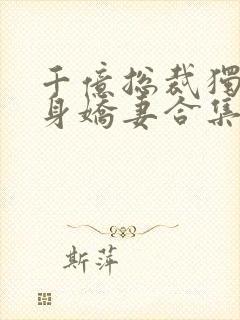 千億總裁獨
身嬌妻合集
斯萍